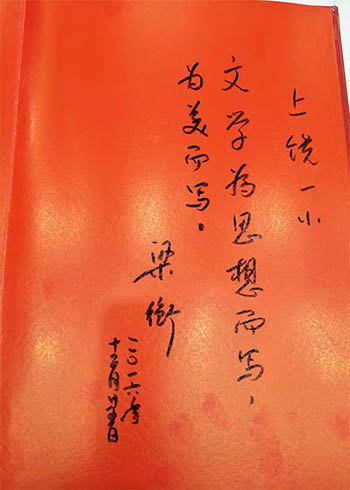 上饶一小
文学为思想而写，
为美而写。
梁衡
二〇一六年
十二月廿五日